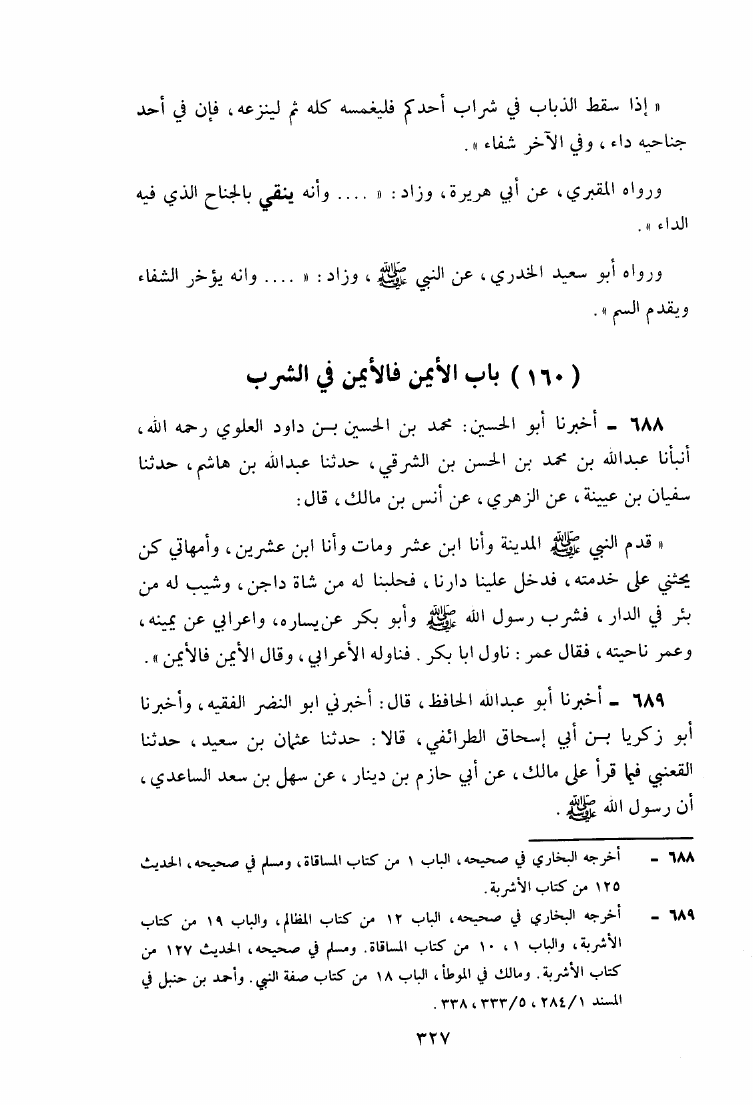 « إذا سقط الذباب في شراب أحدكم فليغمسه كله ثم لينزعه، فإن في أحد
جناحيه داء، وفي الآخر شفاء ».
ورواه المقبري، عن أبي هريرة، وزاد: « .... وأنه ينقي بالجناح الذي فيه
الداء ».
ورواه أبو سعيد الخدري، عن النبي ﷺ، وزاد: « .... وانه يؤخر الشفاء
ويقدم السم ».
( ١٦٠ ) باب الأيمن فالأيمن في الشرب
٦٨٨ - أخبرنا أبو الحسين: محمد بن الحسين بن داود العلوي رحمه الله،
أنبأنا عبدالله بن محمد بن الحسن بن الشرقي، حدثنا عبدالله بن هاشم، حدثنا
سفيان بن عيينة، عن الزهري، عن أنس بن مالك، قال:
« قدم النبي ﷺ المدينة وأنا ابن عشر ومات وأنا ابن عشرين، وأمهاتي كن
يحثني على خدمته، فدخل علينا دارنا، فحلبنا له من شاة داجن، وشيب له من
بئر في الدار، فشرب رسول الله ﷺ وأبو بكر عن يساره، واعرابي عن يمينه،
وعمر ناحيته، فقال عمر: ناول ابا بكر. فناوله الأعرابي، وقال الأيمن فالأيمن ».
٦٨٩ - أخبرنا أبو عبدالله الحافظ، قال: أخبرني ابو النضر الفقيه، وأخبرنا
أبو زكريا بن أبي إسحاق الطرائفي، قالا: حدثنا عثمان بن سعيد، حدثنا
القعنبي فيما قرأ على مالك، عن أبي حازم بن دينار، عن سهل بن سعد الساعدي،
أن رسول الله ﷺ.
٦٨٨ - أخرجه البخاري في صحيحه، الباب ١ من كتاب المساقاة، ومسلم في صحيحه، الحديث
١٢٥ من كتاب الأشربة.
٦٨٩ - أخرجه البخاري في صحيحه، الباب ١٢ من كتاب المظالم، والباب ١٩ من كتاب
الأشربة، والباب ١، ١٠ من كتاب المساقاة. ومسلم في صحيحه، الحديث ١٢٧ من
كتاب الأشربة. ومالك في الموطأ، الباب ١٨ من كتاب صفة النبي. وأحمد بن حنبل في
المسند ٢٨٤/١، ٣٣٣/٥، ٣٣٨.
٣٢٧